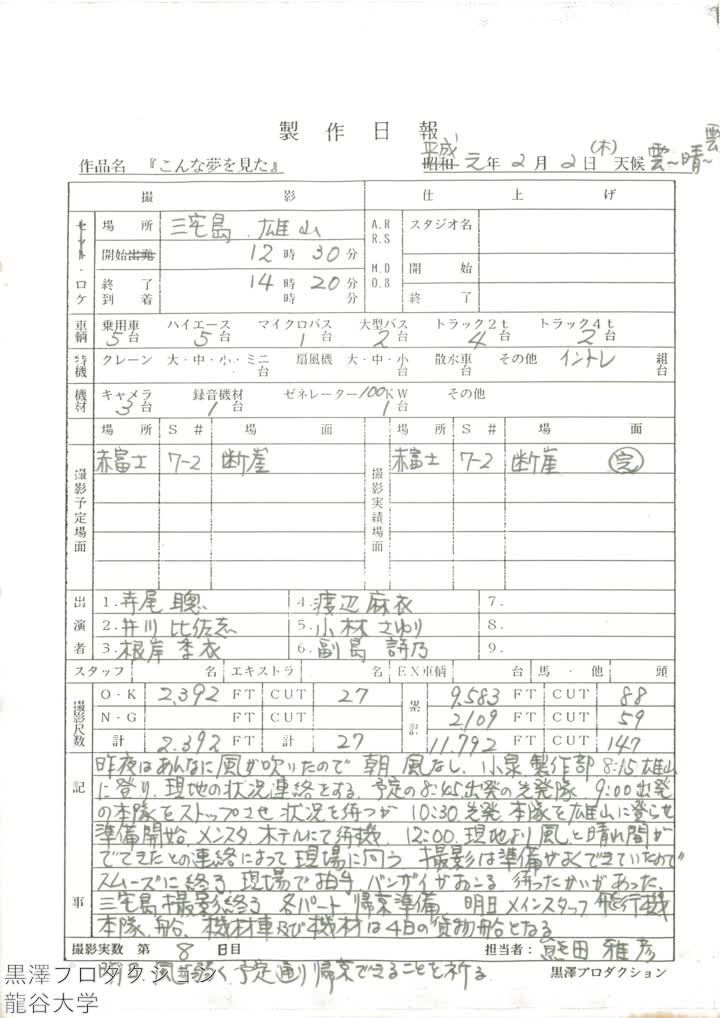 製作日報
作品名 『こんな夢を見た』 平成 昭和 元年 2月2日 (木) 天候 雲〜晴〜雲
撮影 仕上げ
セット・ロケ 場所 三宅島 雄山 A.R R.S スタジオ名
開始出発 12時30分 M.D O.8 開始
終了 14時20分 終了
到着 時 分
車輌 乗用車 5台 ハイエース 5台 マイクロバス 1台 大型バス 2台 トラック2t 4台 トラック4t 2台
特機 クレーン 大・中・小・ミニ 台 扇風機 大・中・小 台 散水車 台 その他 イントレ 組台
機材 キャメラ 3台 録音機材 1台 ゼネレーター100KW 1台 その他
場所 S# 場面 場所 S# 場面
撮影予定場面 赤富士 7-2 断崖 撮影実績場面 赤富士 7-2 断崖 完
出演者 1.寺尾聰 4.渡辺麻衣 7.
2.井川比佐志 5.小林さゆり 8.
3.根岸季衣 6.副島詩乃 9.
スタッフ 名 エキストラ 名 EX車輌 台 馬・他 頭
撮影尺数 O・K 2,392 FT CUT 27 累計 9,583 FT CUT 88
N・G FT CUT 2,109 FT CUT 59
計 2,392 FT 計 27 11,792 FT CUT 147
記事 昨夜はあんなに風が吹いたので 朝 風なし、小泉製作部 8:15 雄山
に登り、現地の状況連絡をする。予定の8:45出発の先発隊、9:00出発
の本隊をストップさせ 状況を待つが 10:30 先発 本隊を雄山に登らせ
準備開始 メンスタ、ホテルにて待機、12:00、現地より風と晴れ間が
でてきたとの連絡によって 現場に向う 撮影は準備がよくできていたので
スムーズに終了、現場で拍手、バンザイがおこる 待ったかいがあった、
三宅島撮影終了 各パート帰京準備 明日 メインスタッフ 飛行機
本隊、船、機材車及び機材は4日の貨物船となる
撮影実数 第8日目 担当者:熊田雅彦
明日 風弱く 予定通り帰京できることを祈る
黒澤プロダクション
黒澤プロダクション
龍谷大学